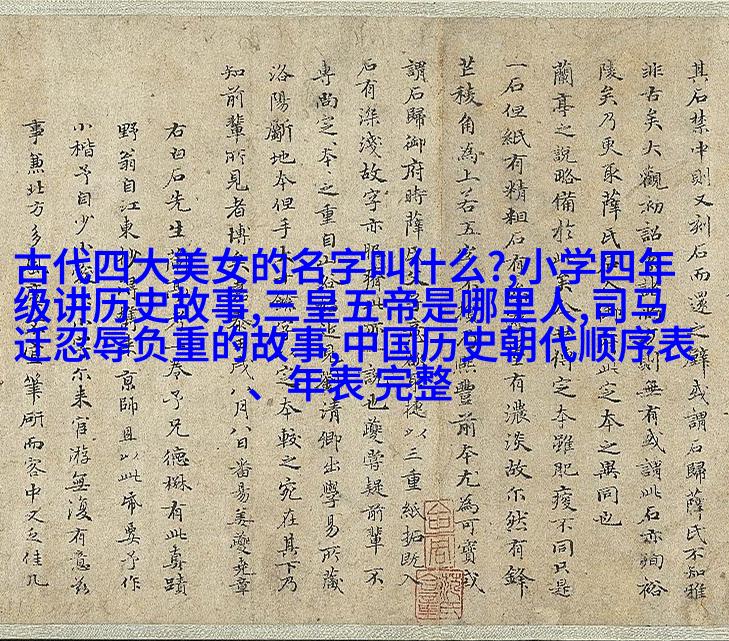 古代四大美女的名字叫什么?,小学四年
级讲历史故事,三皇五帝是哪里人,司马
迁忍辱负重的故事,中国历史朝代顺序表
、年表 完整
其石禁中則又刻石而還之薛或謂石歸薛氏不知雅
誰古矣大觀初詔刻無有或謂此石亦殉裕
陵矣乃更取薛氏此定本之異同也
蘭亭之說略備於此人得定本雖肥瘦不同只是
一石但紙有精粗石有有濃淡故尔然有鋒
芒稜角為上若五字不損熙豐前本尤為可寶或
謂石歸御府時薛氏捷以三重紙拓既入
石有深淺故字亦肥瘠此說也夔嘗疑前輩不
專尚定本本之重自山谷始清卿出學易所藏
洛陽斷地本但手定本較之宛在其下乃
知前輩所見者博矣嘉泰壬戌八月八日番昜姜夔堯章
右白石先生卷予兄德楙有此真蹟
野翁自江東抄得京師且以此帋要予作
小楷予自少小尔来官游無復有意茲
事兼北方多筆研而客中又乏佳几